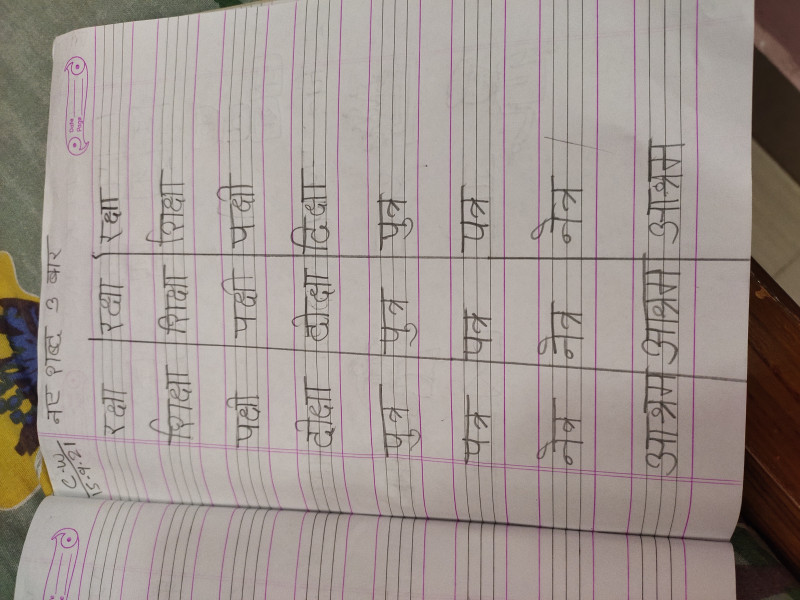 Date
Page
C.W
15.9.21
नए शब्द 3 बार
रक्षा रक्षा रक्षा
शिक्षा शिक्षा शिक्षा
पक्षी पक्षी पक्षी
दीक्षा दीक्षा दिक्षा
पुत्र पुत्र पुत्र
पत्र पत्र पत्र
नेत्र नेत्र नेत्र
आश्रम आश्रम आश्रम